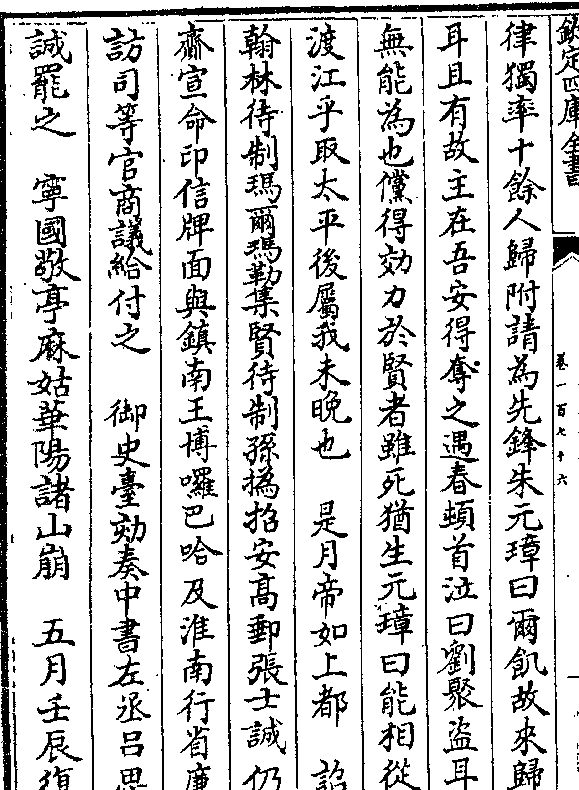 欽定四庫全書
卷一百七十六
律獨率十餘人歸附請為先鋒朱元璋曰爾飢故來歸
耳且有故主在吾安得奪之遇春頓首泣曰劉聚盜耳
無能為也儻得効力於賢者雖死猶生元璋曰能相從
渡江乎取太平後屬我未晚也　是月帝如上都　詔
翰林待制瑪爾瑪勒集賢待制孫撝招安高郵張士誠仍
齎宣命印信牌面與鎮南王博囉巴哈及淮南行省廉
訪司等官商議給付之　御史臺劾奏中書左丞呂思
誠罷之　寧國敬亭麻姑華陽諸山崩　五月壬辰復